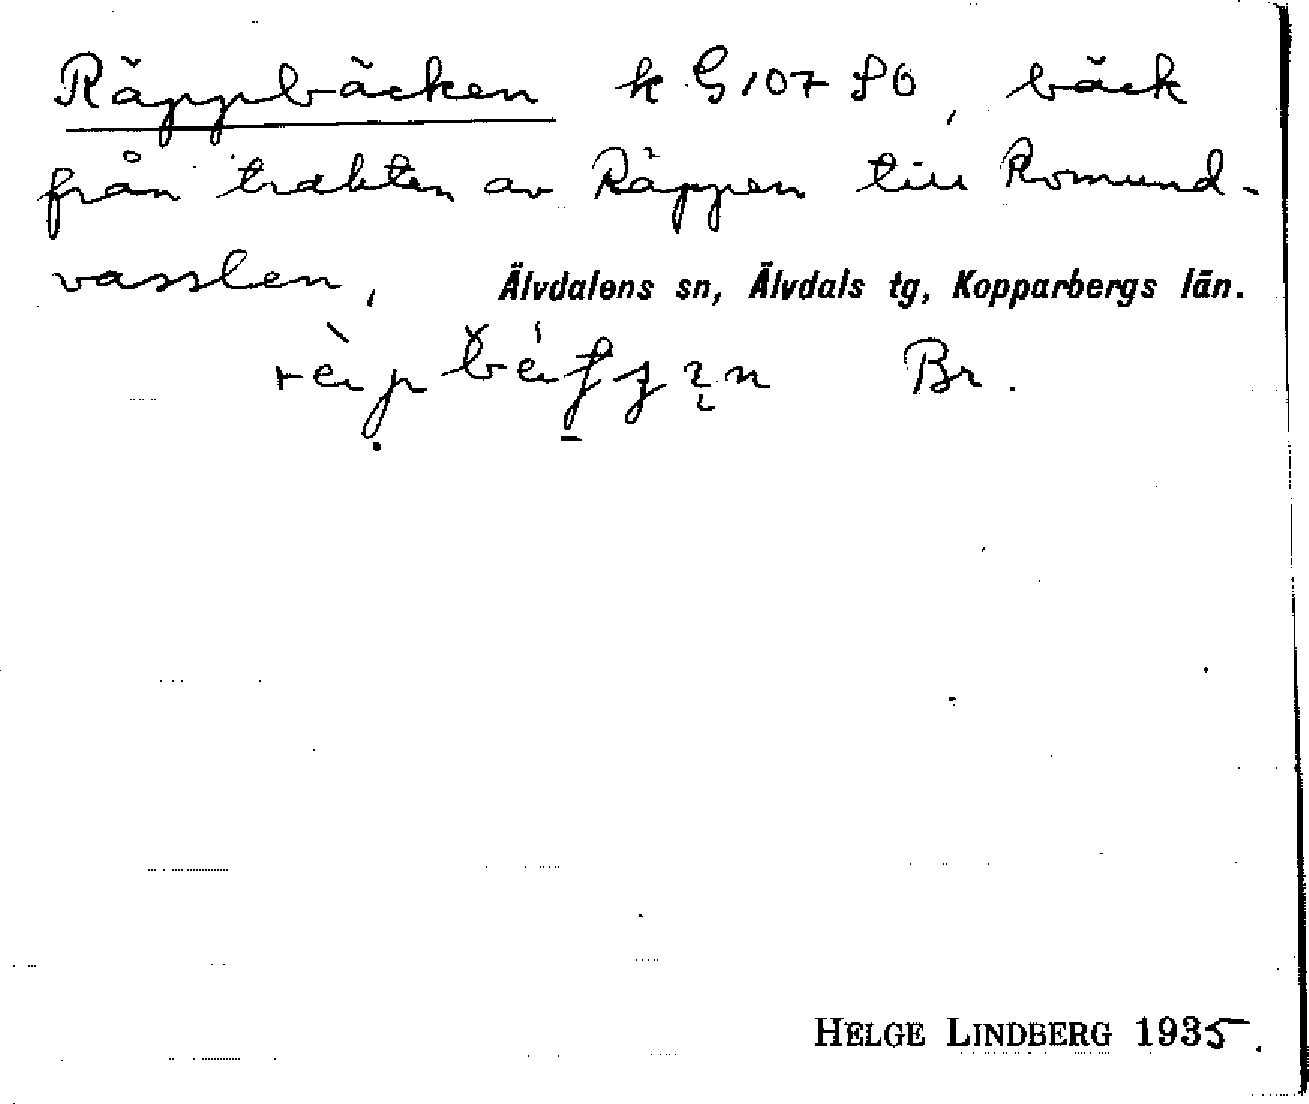 Räppbäcken k G 107 SO, bäck
från trakten av Räppen till Romund-
vasslen, Älvdalens sn, Älvdals tg, Kopparbergs län.
Br.
HELGE LINDBERG 1935.